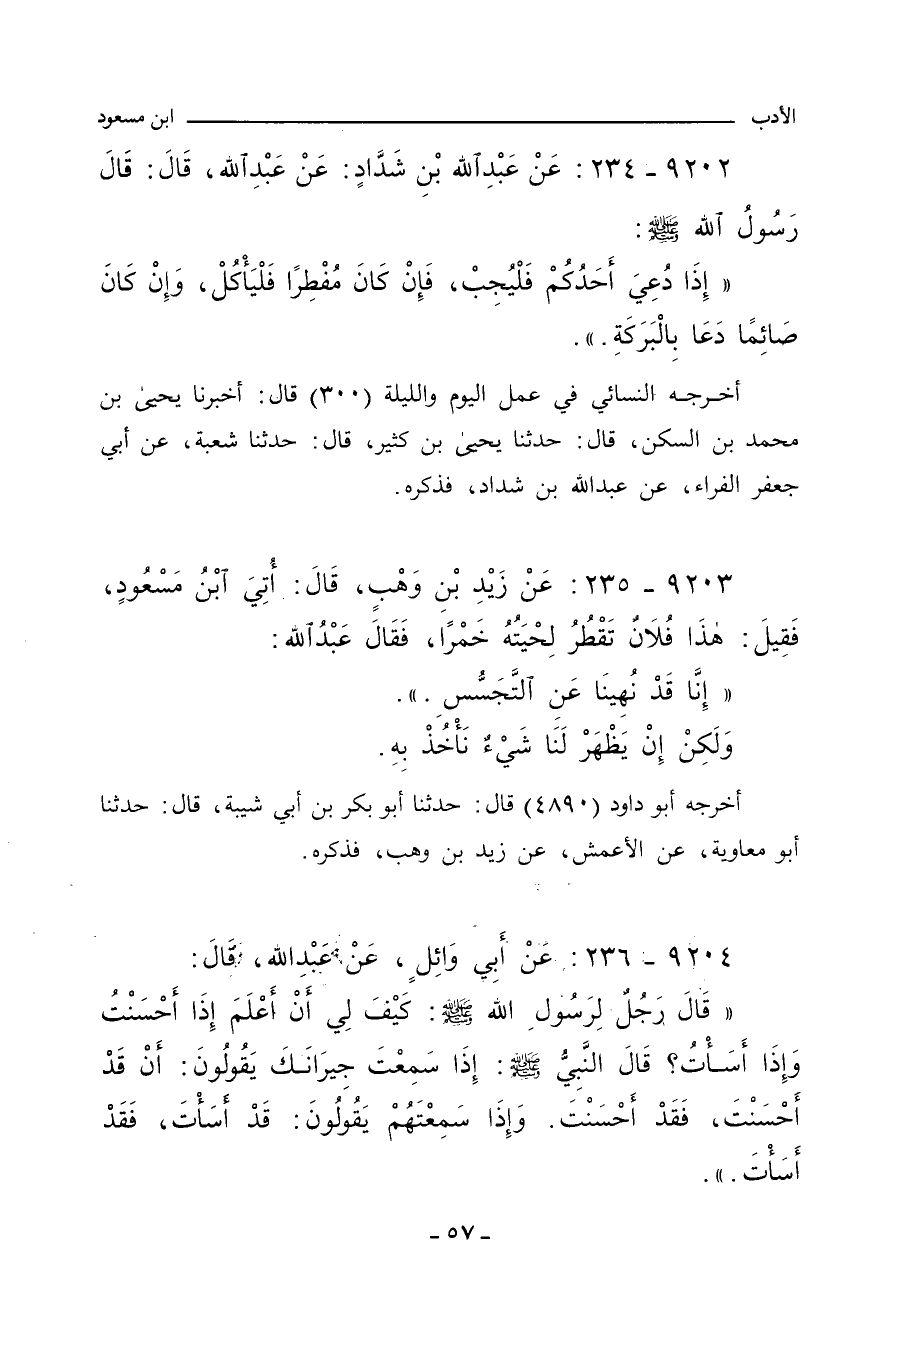 الأدب ــــــــــــــــــــ ابن مسعود
٩٢٠٢ - ٢٣٤ : عَنْ عَبْدِٱلله بْنِ شَدَّادٍ: عَنْ عَبْدِٱلله، قَالَ: قَالَ
رَسُولُ ٱلله ﷺ:
« إِذَا دُعِيَ أَحَدُكُمْ فَلْيُجِبْ، فَإِنْ كَانَ مُفْطِرًا فَلْيَأْكُلْ، وَإِنْ كَانَ
صَائِمًا دَعَا بِالْبَرَكَةِ. ».
أخرجه النسائي في عمل اليوم والليلة (٣٠٠) قال: أخبرنا يحيىٰ بن
محمد بن السكن، قال: حدثنا يحيىٰ بن كثير، قال: حدثنا شعبة، عن أبي
جعفر الفراء، عن عبدالله بن شداد، فذكره.
٩٢٠٣ - ٢٣٥ : عَنْ زَيْدِ بْنِ وَهْبٍ، قَالَ: أُتِيَ ٱبْنُ مَسْعُودٍ،
فَقِيلَ: هٰذَا فُلَانٌ تَقْطُرُ لِحْيَتُهُ خَمْرًا، فَقَالَ عَبْدُٱلله:
« إِنَّا قَدْ نُهِينَا عَنِ ٱلتَّجَسُّسِ . ».
وَلَكِنْ إِنْ يَظْهَرْ لَنَا شَيْءٌ نَأْخُذْ بِهِ.
أخرجه أبو داود (٤٨٩٠) قال: حدثنا أبو بكر بن أبي شيبة، قال: حدثنا
أبو معاوية، عن الأعمش، عن زيد بن وهب، فذكره.
٩٢٠٤ - ٢٣٦ : عَنْ أَبِي وَائِلٍ، عَنْ عَبْدِالله، قَالَ:
« قَالَ رَجُلٌ لِرَسُولِ الله ﷺ: كَيْفَ لِي أَنْ أَعْلَمَ إِذَا أَحْسَنْتُ
وَإِذَا أَسَأْتُ؟ قَالَ النَّبِيُّ ﷺ: إِذَا سَمِعْتَ جِيرَانَكَ يَقُولُونَ: أَنْ قَدْ
أَحْسَنْتَ، فَقَدْ أَحْسَنْتَ. وَإِذَا سَمِعْتَهُمْ يَقُولُونَ: قَدْ أَسَأْتَ، فَقَدْ
أَسَأْتَ. ».
- ٥٧ -